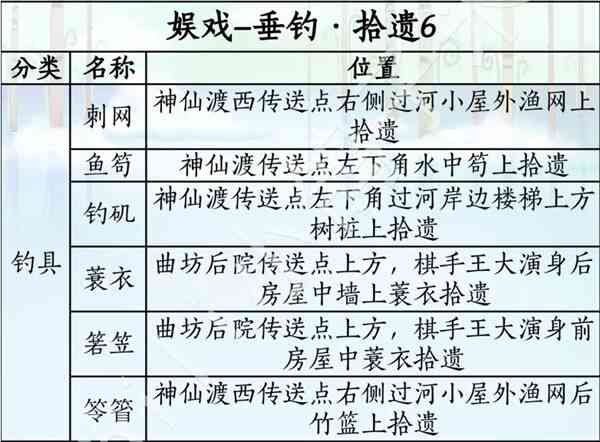 娱戏-垂钓·拾遗6
分类 名称 位置
钓具
刺网 神仙渡西传送点右侧过河小屋外渔网上
拾遗
鱼笱 神仙渡传送点左下角水中笱上拾遗
钓矶 神仙渡传送点左下角过河岸边楼梯上方
树桩上拾遗
蓑衣 曲坊后院传送点上方，棋手王大演身后
房屋中墙上蓑衣拾遗
箬笠 曲坊后院传送点上方，棋手王大演身前
房屋中蓑衣拾遗
笭箵 神仙渡西传送点右侧过河小屋外渔网后
竹篮上拾遗